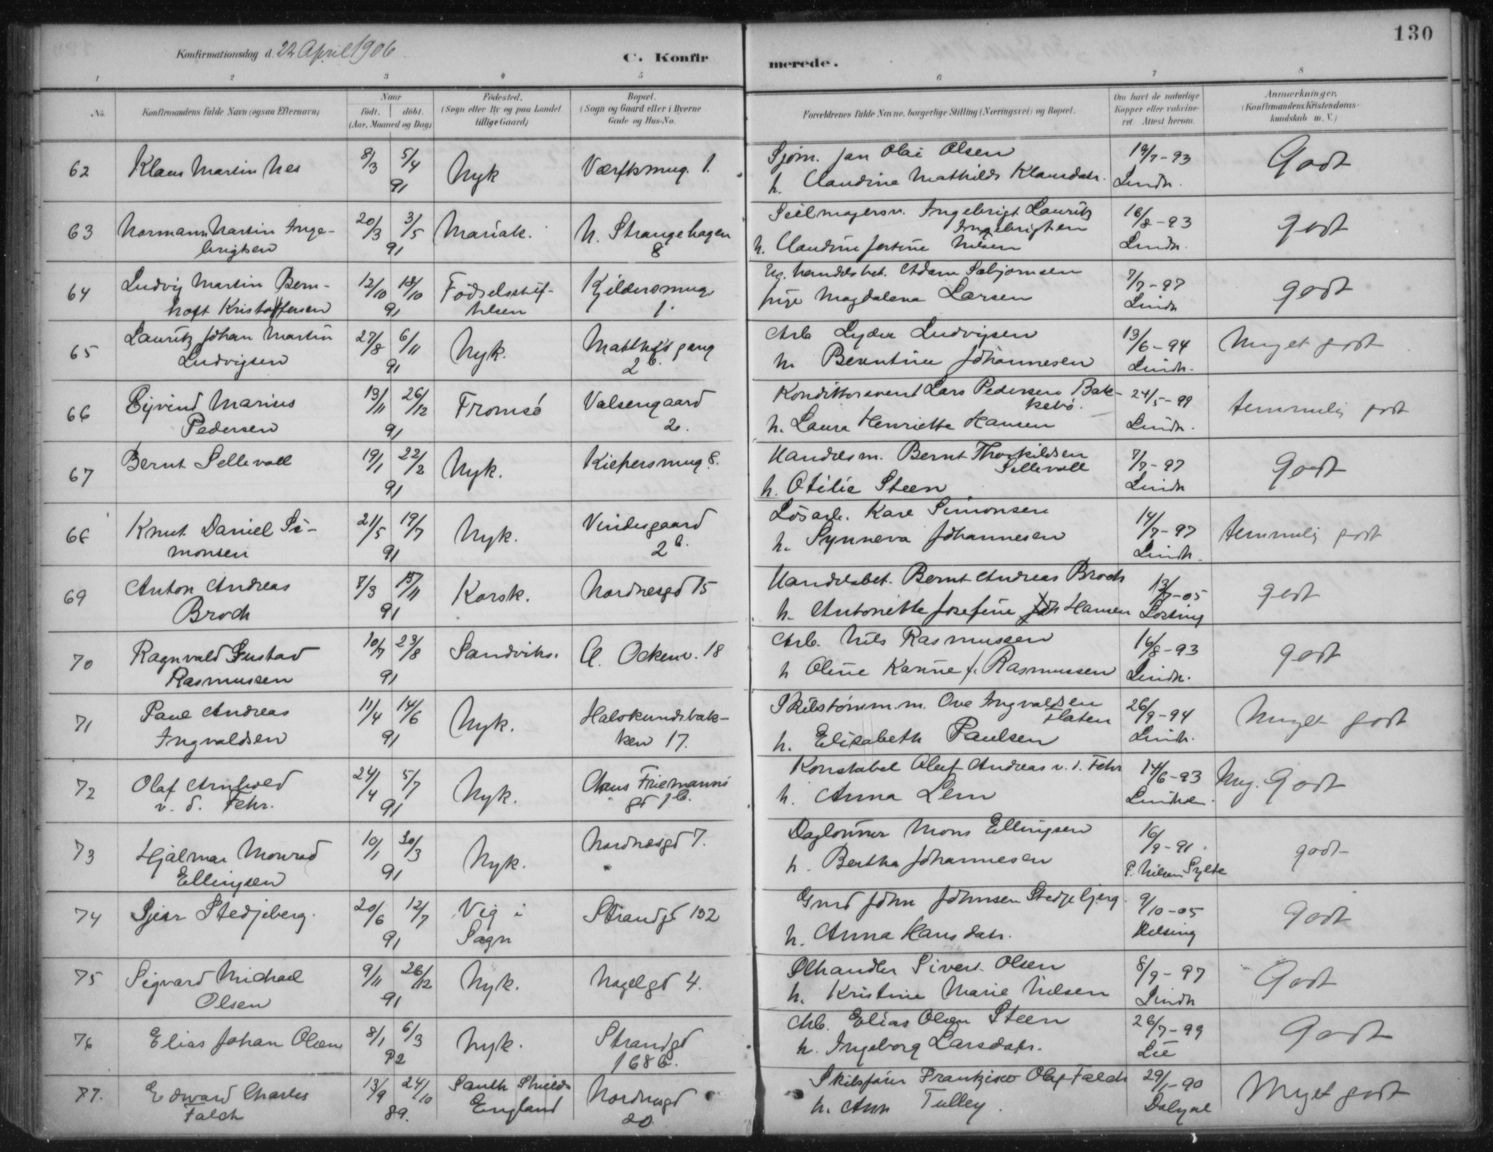 130
Konfirmationsdag d. 22 April 1906
C. Konfirmerede.
1 2 3 4 5 6 7 8
No. Konfirmandens fulde Navn (ogsaa Efternavn) Naar født. døbt. (Aar, Maaned og Dag) Fødested. (Sogn eller By og paa Landet tillige Gaard) Bopæl. (Sogn og Gaard eller i Byerne Gade og Hus-No. Forældrenes fulde Navne, borgerlige Stilling (Næringsvei) og Bopæl. Om havt de naturlige Kopper eller vaccineret. Attest herom. Anmærkninger. (Konfirmandens Kristendomskundskab m. V.)
62 Klaus Martin Nes 8/3 5/4 91 Nyk Værftsmug. 1. Sjøm. Jan Olai Olsen 19/7-93 Godt
h. Claudine Mathilde Klausdatr. Lindh.
63 Normann Martin Inge- 20/3 3/5 Mariak. N. Strangehagen Seilmagersv. Ingebrigt Lauritz 16/8-93 godt
brigtsen 91 8 Ingebrigtsen
h. Claudine Jertine Nilsen Lindh.
64 Ludvig Martin Bern- 12/10 18/10 Fødselsstif- Kjeldersmug. handelsbet. Adam 7/7-97 godt
hoft Kristoffersen 91 telsen 1. pige Magdalena Larsen Lindh
65 Lauritz Johan Martin 27/8 6/11 Nyk. Matthisgang Arb. Lyder Ludvigsen 13/6-94 Meget godt
Ludvigsen 91 2b. h. Berentine Johannesen Lindh.
66 Eyvind Marius 13/11 26/12 Tromsø Valsengaard Konditorsvend Lars Pedersen Bak- 24/5-99 temmelig godt
Pedersen 91 2. kebø.
h. Laura Henriette Hansen Lindh.
67 Bernt Sellevold 19/1 22/2 Nyk. Kiepersmug 8. Handelsm. Bernt Thorkildsen 7/7-97 Godt
91 Sellevold
h. Otilie Steen Lindh
68 Knut Daniel Si- 21/5 19/7 Nyk. Vindesgaard Løsarb. Kare Simonsen 14/7-97 temmelig godt
monsen 91 2b. h. Synneva Johannesen Lindh.
69 Anton Andreas 7/3 15/11 Korsk. Nordnesgd 15 Handelsbet. Bernt Andreas Broch 13/7-05 godt
Broch 91 h. Antonette Josefine Hansen
70 Ragnvald Gustav 10/7 23/8 Sandviks. A. Ockenv. 18 Arb. Nils Rasmussen 16/8-93 godt
Rasmussen 91 h Oline Karine f. Rasmussen Lindh.
71 Paul Andreas 11/4 14/6 Nyk. Halvkandebak- Skibstømm.m. Ove Ingvaldsen 26/9-94 Meget godt
Ingvaldsen 91 ken 17. Flaten
h. Elisabeth Paulsen Lindh.
72 Olaf Arnhold 24/4 5/7 Nyk. Claus Friemanns Konstabel Oluf Andreas v. d. Fehr 14/6-93 Meg. Godt
v. d. Fehr. 91 gd 1b. h. Anna Lem Lindh
73 Hjalmar Monrad 10/1 30/3 Nyk. Nordnesgd 7. Daglønner Mons Ellingsen 16/9-91. godt
Ellingsen 91 h. Bertha Johannesen P. Nilsen Sylte
74 Gjert Stedjeberg. 20/6 12/7 Vig i Strandgd 132 Gmd John Johnsen Stedjebjerg 9/10-05 Godt
91 Sogn h. Anna Hansdatr. Helsing
75 Sigvard Michael 9/11 26/12 Nyk. Nagelgd 4. Ølhandler Sivert Olsen 8/9-97 Godt
Olsen 91 h. Kristine Marie Nilsen Lindh
76 Elias Johan Olsen 8/1 6/3 Nyk. Strandgd Arb. Elias Olsen Steen 26/7-99 Godt
92 168b. h. Ingeborg Larsdatr. Lie
77. Edward Charles 13/9 24/10 South Shields Nordnesgd Skibsfører Frantzisco Olaf Falch 29/5-90 Meget godt
Falch 89. England 20 h. Ann Tulley. Dalgal